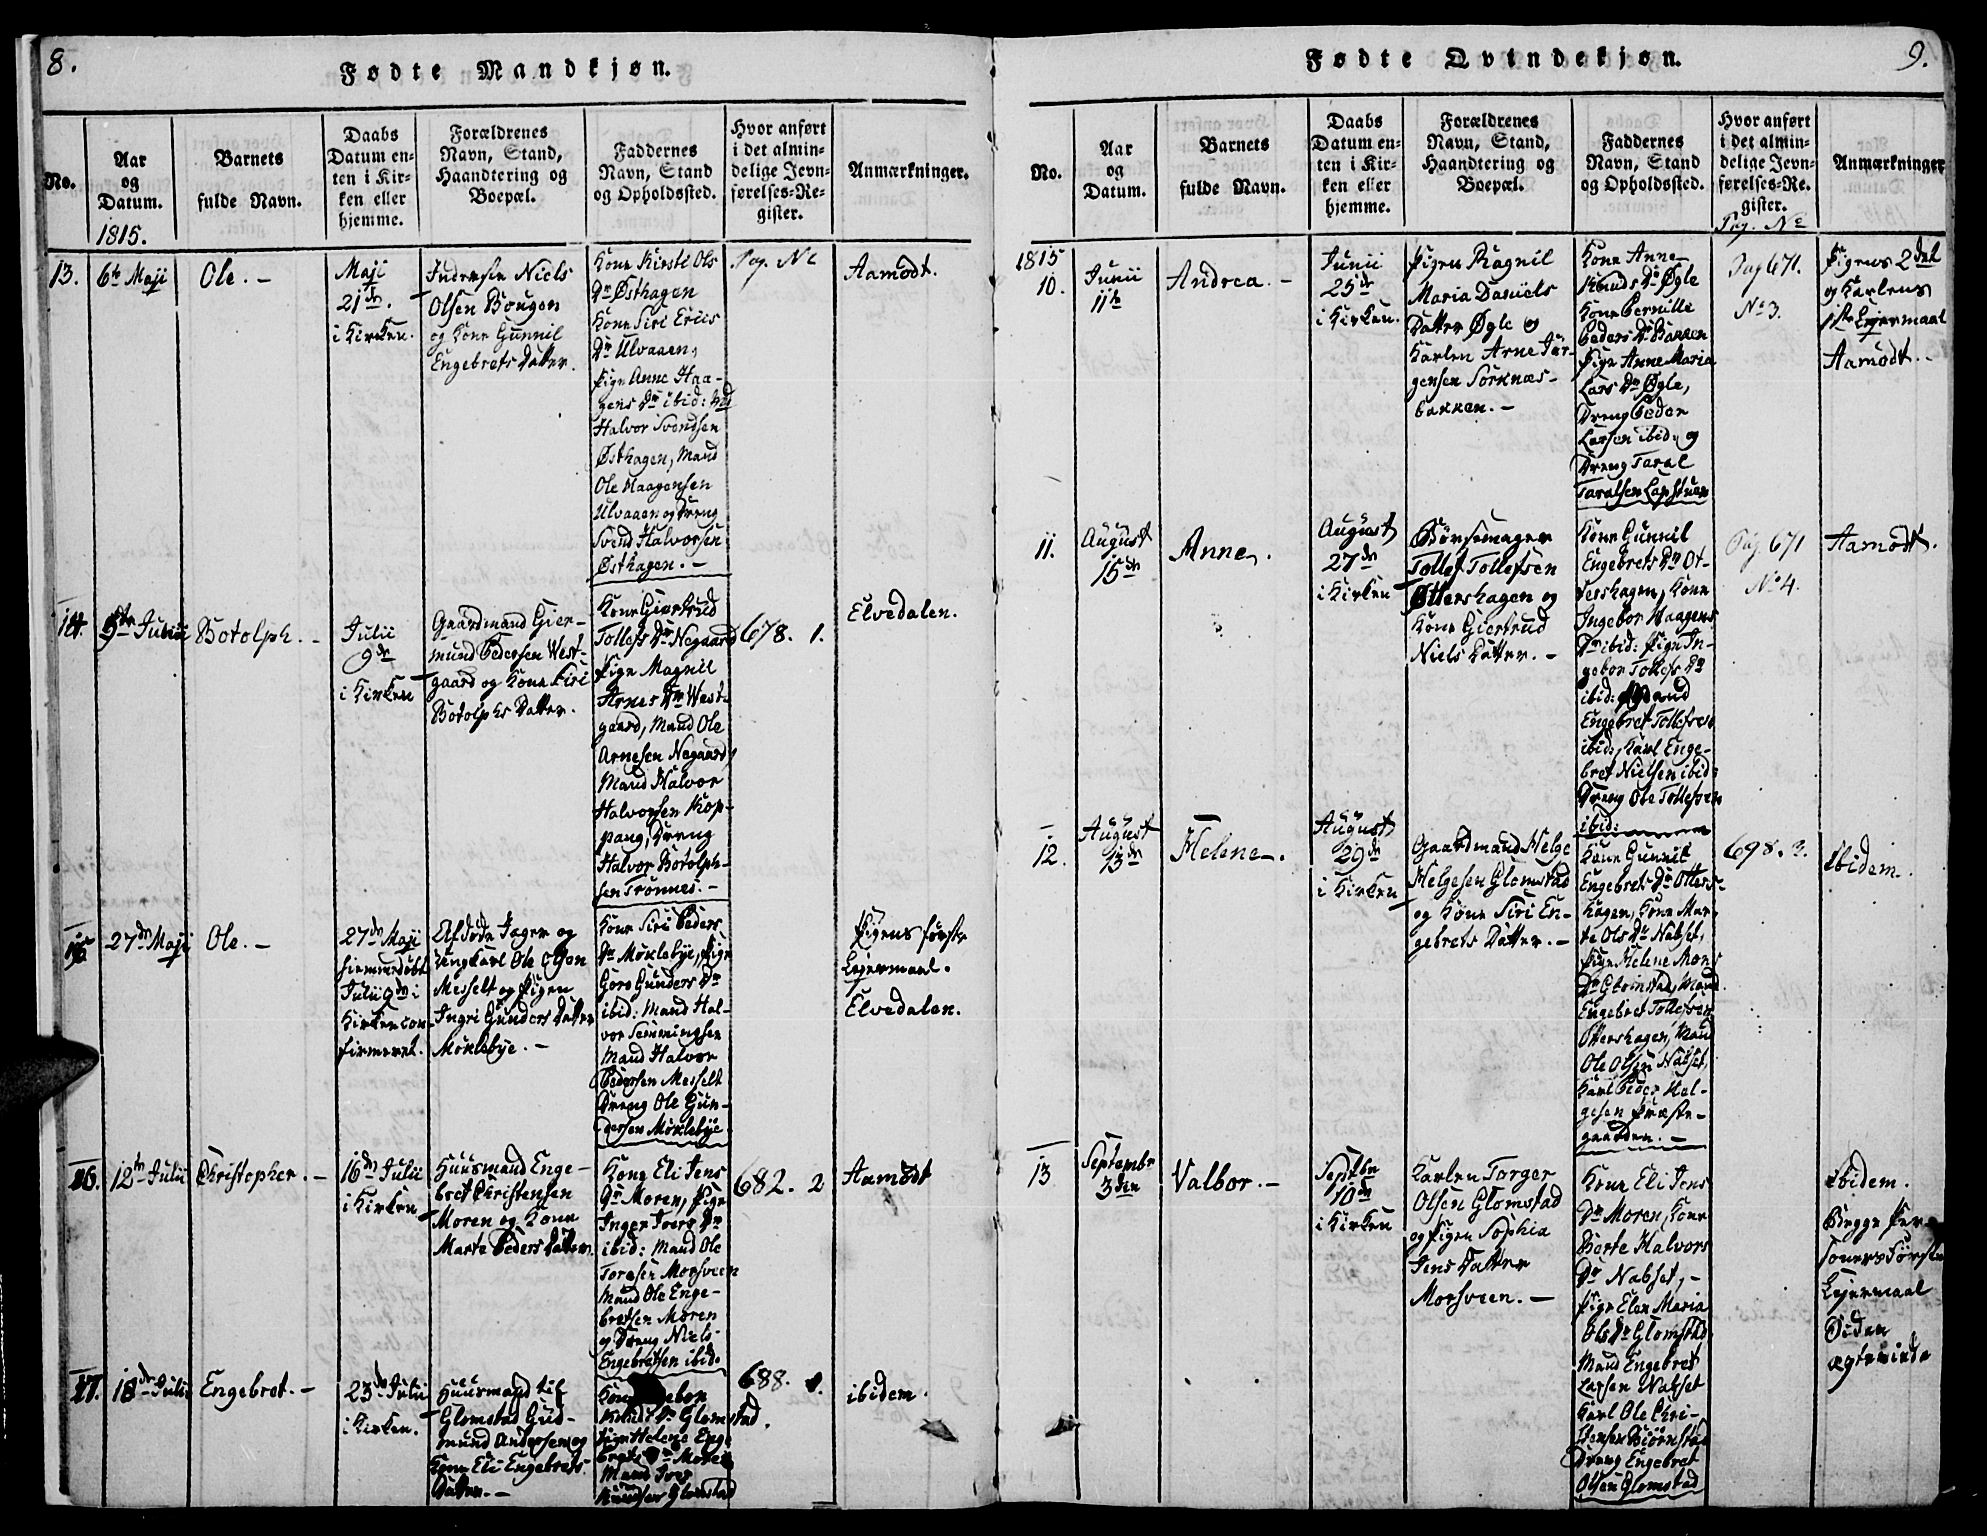 8.
Fødte Mandkjøn.
No.
Aar
og
Datum.
1815.
Barnets
fulde Navn.
Daabs
Datum en-
ten i Kir-
ken eller
hjemme.
Forældrenes
Navn, Stand,
Haandtering og
Boepæl.
Faddernes
Navn, Stand
og Opholdssted.
Hvor anført
i det almin-
delige Jevn-
førelses-Re-
gister.
Anmærkninger.
13.
6te Maji
Ole. -
Maji
21de. -
i Kirken.
Inderste Niels
Olsen Bougen
og Kone Gunnil
Engebrets Datter.
Kone Kirsti Ols
Dr Østhagen
Kone Siri Erics
Dr Ulvaaen,
Pige Anne Haa-
gens Dr ibid: Md
Halvor Svendsen
Østhagen, Mand
Ole Haagensen
Ulvaaen og Dreng
Svend Halvorsen
Østhagen. -
Pag. No
Aamodt.
14.
5te Julii
Botolph. -
Julii
9de
i Kirken
Gaardmand Gier-
mund Pedersen West-
gaard og Kone Siri
Botolphs Datter.
Kone Giertrud
Tollefs Dr Negaard
Pige Magnil
Arnes Dr West-
gaard, Mand Ole
Arnesen Negaard,
Mand Halvor
Halvorsen Kop-
pang, Dreng
Halvor Botolph-
sen Trønnes. -
678. 1.
Elvedalen.
15
27de Maji
Ole. -
27de Maji
hjemmedøbt
Julii 9de i
Kirken con-
firmeret.
Afdøde Jager og
Ungkarl Ole Olsen
Messelt og Pigen
Ingri Gunders Datter
Møklebye. -
Kone Siri Peders
Dr Møklebye, Pige
Goro Gunders Dr
ibid: Mand Hal-
vor Semmingsen
Mand Halvor
Pedersen Messelt
Dreng Ole Gun-
dersen Møklebye.
Pigens første
Lejermaal.
Elvedalen.
16.
12te Julii
Christopher. -
16de Julii
i Kirken
Huusmand Enge-
bret Christensen
Moren og Kone
Marte Peders Datter.
Kone Eli Jens
Dr Moren, Pige
Inger Ivers Dr
ibid: Mand Ole
Toresen Morsveen
Mand Ole Enge-
bretsen Moren
og Dreng Niels
Engebretsen ibid.
682. 2
Aamodt
17.
18de Julii
Engebret. -
23de Julii
i Kirken.
Huusmand til
Glomstad Gud-
mund Andersen og
Kone Eli Engebrets
Datter. -
Kone
Knuds Dr Glomstad.
Pige Helene Enge-
brets Dr Moren
Mand Iver
Knudsen Glomstad
688. 1.
ibidem.
Fødte Qvindekjøn.
9.
No.
Aar
og
Datum.
Barnets
fulde Navn.
Daabs
Datum en-
ten i Kir-
ken eller
hjemme.
Forældrenes
Navn, Stand,
Haandtering og
Boepæl.
Faddernes
Navn, Stand
og Opholdssted.
Hvor anført
i det almin-
delige Jevn-
førelses-Re-
gister.
Pag. No
Anmærkninger
1815
10.
Junii
11te
Andrea. -
Junii
25de
i Kirken.
Pigen Ragnil
Maria Daniels
Datter Øgle og
Karlen Arne Jør-
gensen Sorknæs-
bakken. -
Kone Anne
Knuds Dr Øgle
Kone Pernille
Peders Dr Bakken
Pige Anne Maria
Lars Dr Øgle,
Dreng Peder
Larsen ibid: og
Dreng Taral
Taralsen Lapstuen
Pag 671.
No 3.
Pigens 2det
og Karlens
1ste Lejermaal
Aamodt. -
11.
August
15de
Anne.
August
27de
i Kirken
Børsemager
Tollef Tollefsen
Ottershagen og
Kone Giertrud
Niels Datter. -
Kone Gunnil
Engebrets Dr Ot-
tershagen, Kone
Ingebor Haagens
Dr ibid: Pige In-
gebor Tollefs Dr
ibid: Mand
Engebret Tollefsen
ibid:, Karl Enge-
bret Nielsen ibid:
Dreng Ole Tollefsen
ibid:
Pag. 671
No 4.
Aamodt.
12.
August
13de
Helene.
August
29de
i Kirken
Gaardmand Helge
Helgesen Glomstad
og Kone Siri En-
gebrets Datter. -
Kone Gunnil
Engebrets Dr Otters-
hagen, Kone Mar-
te Ols Dr Nabset,
Pige Helene Mons
Dr Glomstad, Mand
Engebret Tollefsen
Ottershagen, Mand
Ole Olsen Nabset,
Karl Peder Hel-
gesen Præste-
gaarden. -
698. 3.
ibidem.
13
Septembr
3die
Valbor. -
Septbr
10de
i Kirken
Karlen Torger
Olsen Glomstad
og Pigen Sophia
Jens Datter
Morsveen. -
Kone Eli Jens
Dr Moren, Kone
Berte Halvors
Dr Nabset, -
Pige Elen Maria
Ols Dr Glomstad
Mand Engebret
Larsen Nabset
Karl Ole Chri-
stensen Biørnstad
Dreng Engebret
Olsen Glomstad
ibidem.
Begge Per-
soners Første
Lejermaal
Siden
ægteviede